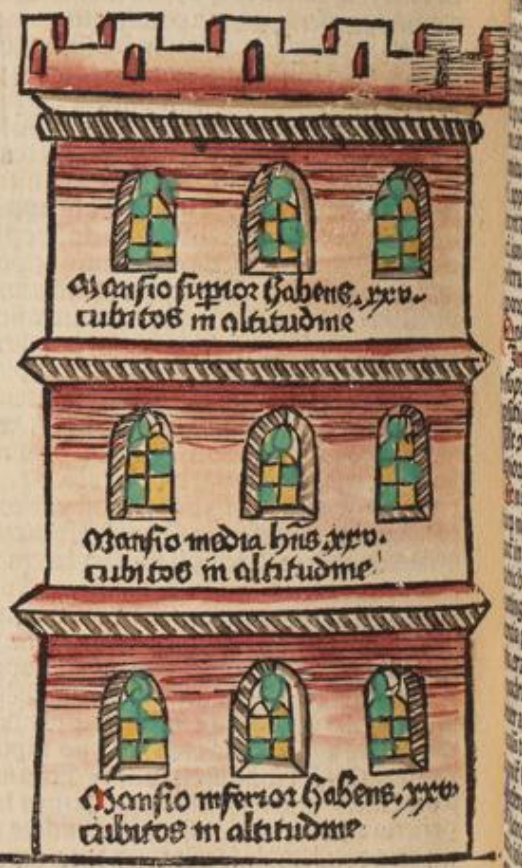 Mansio superior habens .xxv.
cubitos in altitudine
Mansio media hñs .xxv.
cubitos in altitudine
Mansio inferior habens .xxv
cubitos in altitudine